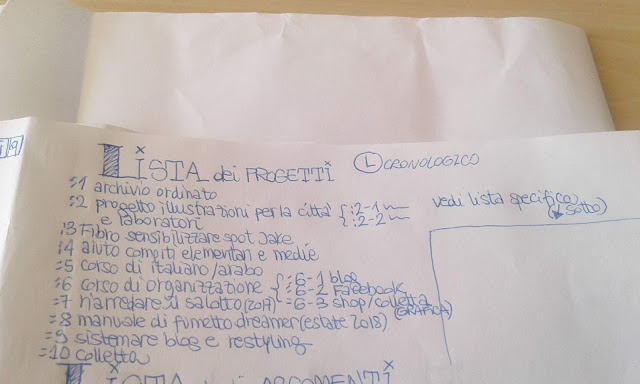 19
LISTA dei PROGETTI (L) CRONOLOGICO
=1 archivio ordinato
=2 progetto illustrazioni per la città { :2-1
e laboratori { :2-2
vedi lista specifica
(▶ SOTTO)
:3 Fibro sensibilizzare spot Jake
:4 aiuto compiti elementari e medie
=5 corso di italiano/arabo
:6 corso di organizzazione { =6-1 blog
=6-2 Facebook
=7 riarredare il salotto (2017) =6-3 shop/colletta
(GRAFICA)
=8 manuale di fumetto dreamer (estate 2018)
=9 sistemare blog e restyling
=10 colletta
LISTA degli ARGOMENTI